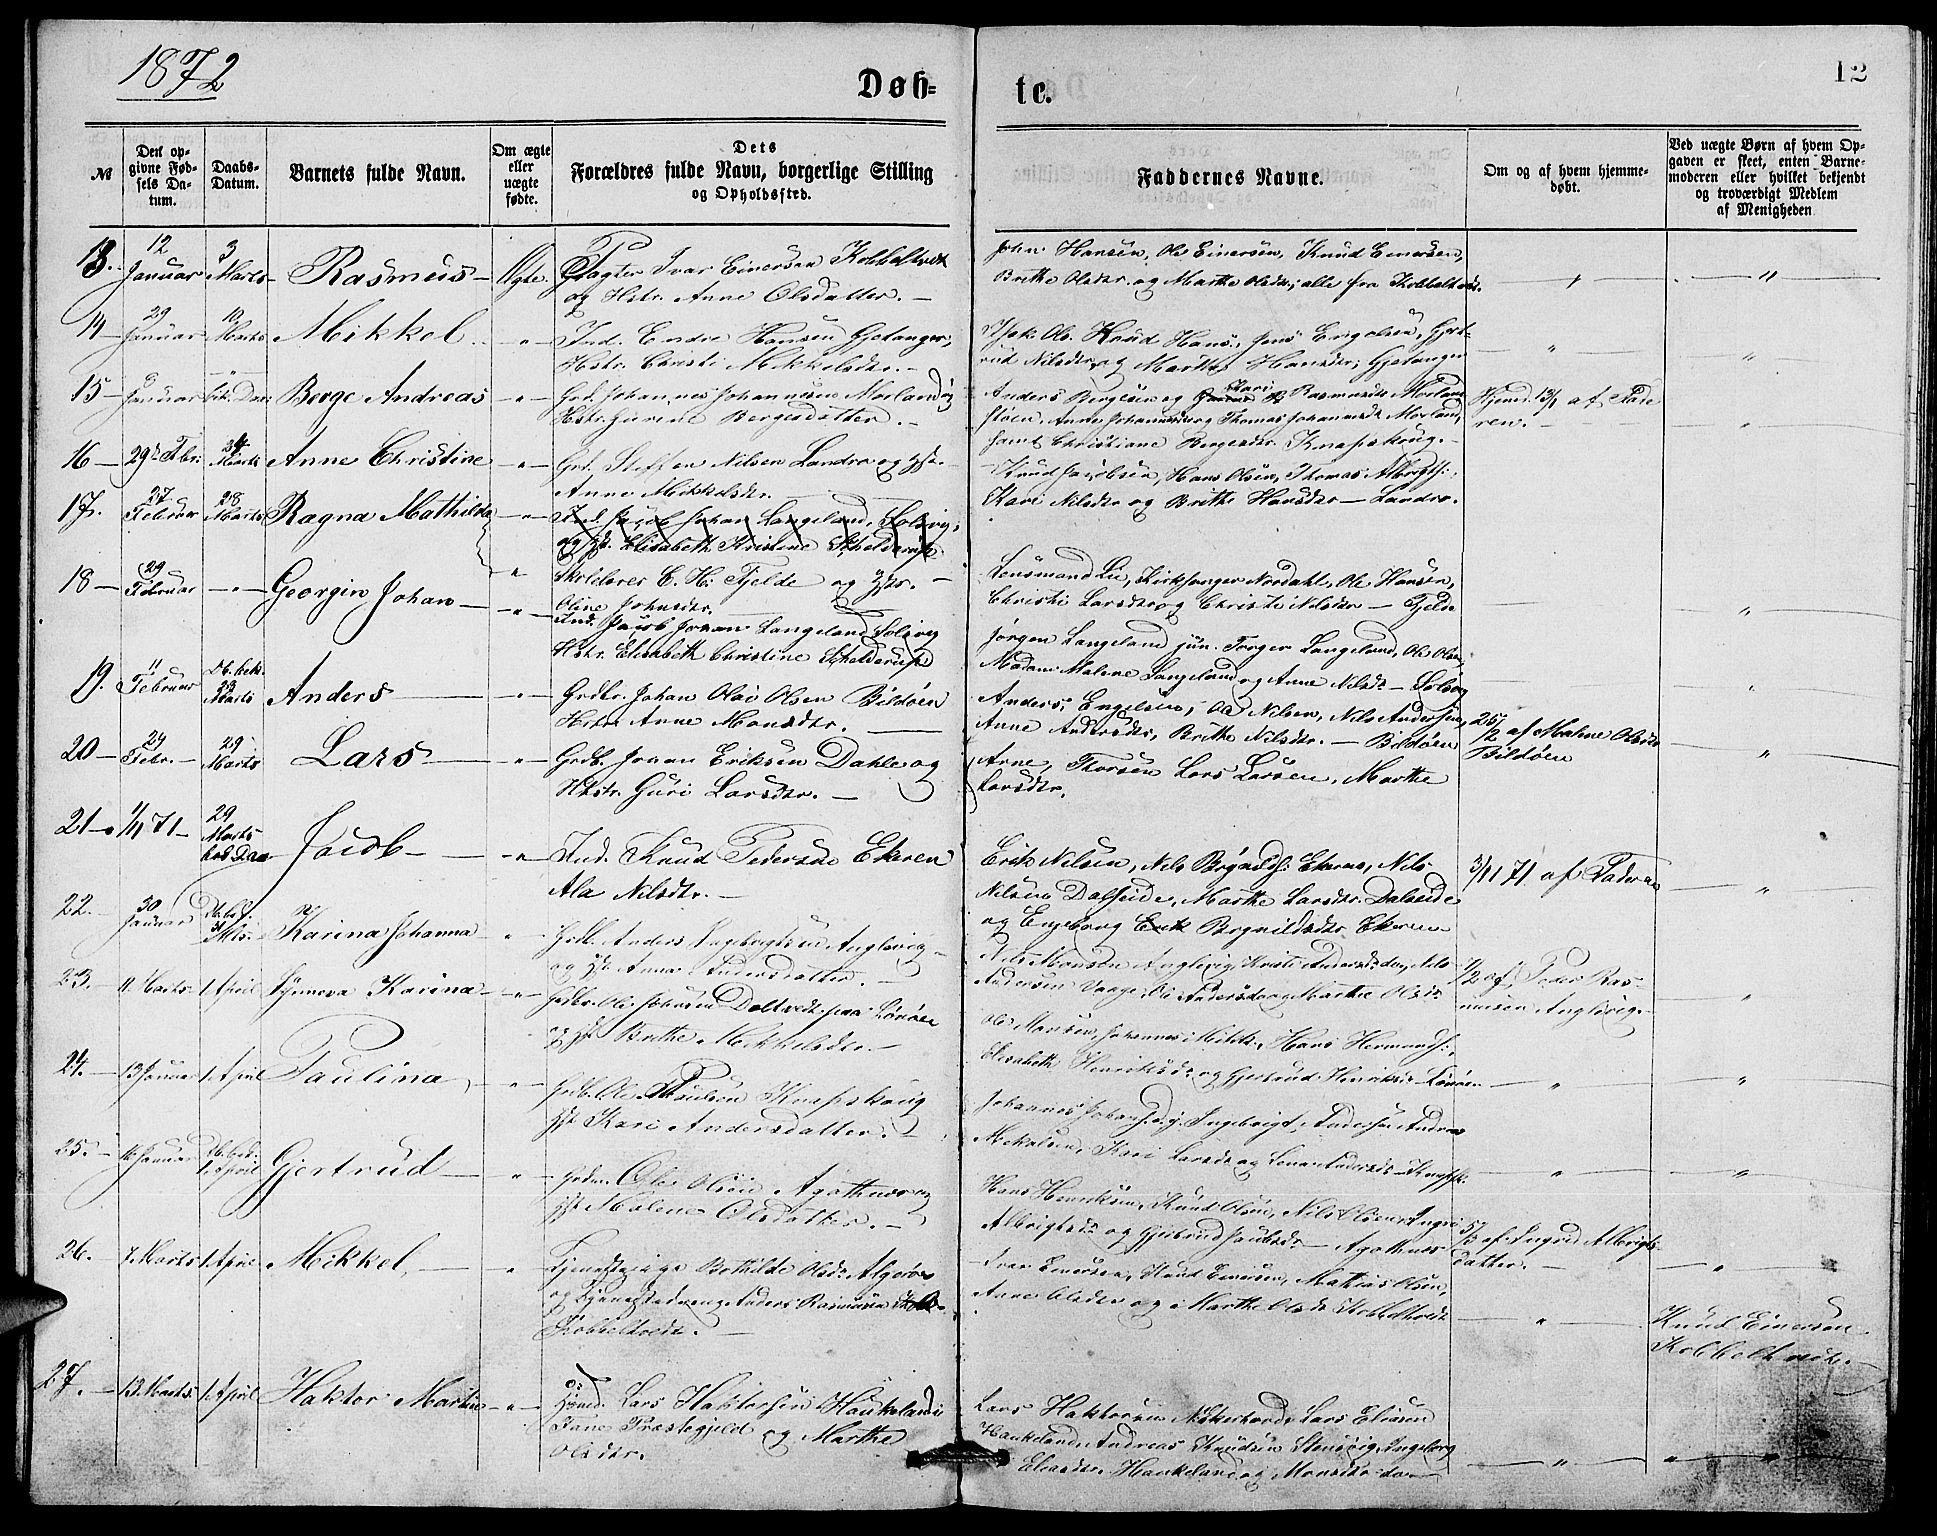 1872
Døb=
te.
12
№
Den op=
givne Fød=
sels Da=
tum.
Daabs=
Datum.
Barnets fulde Navn.
Om ægte
eller
uægte
fødte.
Dets
Forældres fulde Navn, borgerlige Stilling
og Opholdssted.
Faddernes Navne.
Om og af hvem hjemme=
døbt.
Ved uægte Børn af hvem Op=
gaven er skeet, enten Barne=
moderen eller hvilket bekjendt
og troværdigt Medlem
af Menigheden
13. 12 Januar 3 Marts Rasmus Ægte. Ivar Einersen Kobbeltvedt
og Hstr. Anne Olsdatter.
John Hansen, Ole Einersen, Knud Einersen,
Brithe Olsdtr. og Marthe Olsdtr, alle fra Kobbeltvedt.
14 29 Januar 10 Marts Mikkel Ind. Endre Hansen Gjetanger,
Hstr. Christi Mikkelsdtr.
Ole Knud Hans, Jens Engelsen, Gjert-
rud Nilsdtr og Marthe Hansdtr, Gjetanger
15 8 Januar Berge Andreas Johannes Johannesen Morland og
Hstr. Gurine Bergesdatter.
Anders Bergesen og Kari Rasmusdtr Morland
Anne Johannesdtr og Thomas Johannesdtr Morland,
samt Christiane Bergesdtr. Knapskoug.
Hjemd. 13/1 af Fade
ren.
16 29de Febr. 24 Marts Anne Christine Grd. Steffen Nilsen Landro og Hstr.
Anne Mikkelsdtr.
Knud Jacobsen, Hans Olsen, Thomas Albrigts:
Kari Nilsdtr og Brithe Hansdtr Landro.
17. 27 Februar 28 Marts Ragna Mathilda Ind. Jacob Johan Langeland, Solsvig,
og Hst. Elisabeth Kristine Schelderup
18 29 Februar Georgin Johan Skolelærer C. H. Fjelde og Hstr.
Oline Johnsdtr.
Ind. Jacob Johan Langeland Solsvig
Hstr. Elisabeth Christine Schelderup
Lensmand Lie, Kirksanger Nordahl, Ole Hansen,
Christi Larsdtr og Christi Nilsdtr Fjelde
Jørgen Langeland jun. Torger Langeland, Ole Olsen
Madam Malene Langeland og Anne Nilsdtr Solsvig
19. 11 Februar Db. bek. 29 Marts Anders Grdbr. Johan Olai Olsen Bildøen
Hstr. Anne Monsdtr.
Anders Engelsen, Ole Nilsen, Nils Andersen,
Anne Andersdtr, Brithe Nilsdtr. Bildøen
25/2 af Mahne Olsdtr
Bildøen
20 24 Febr. 29 Marts Lars Grdb. Johan Eriksen Dahle og
Hstr. Guri Larsdtr.
Arne Thorsen Lars Larsen, Marthe
Larsdtr.
21 1/11 71 29 Marts Jacob Ind. Knud Pedersen Ekren
Ala Nilsdtr.
Erik Nilsen, Nils Brynilds: Ekren, Nils
Nilsen Dalseide, Marthe Larsdtr. Dalseide
og Engeborg Brynildsdtr Ekren
3/11 71. af Faderen
22. 30 Januar Karina Johanna Grdb. Anders Ingebrigtsen Anglevig
og Hst Anna Andersdatter.
Nils Monsen Anglevig, Kristi Andersdtr, Nils
Andersen Vaage, Andersdtr og Marthe Olsdtr
1/2 af Peder Ras-
musen Anglevig.
23. 11. Marts 1. April Synneva Karina Grdbr. Ole Johnsen Døltvedt paa Lønøen
og Hst Brithe Mikkelsdtr.
Ole Monsen, Johannes Mikk:, Hans Hermands:,
Elisabeth Henriksdtr og Gjertrud Henriksdtr Lønøen
24. 13 Januar 1. April Paulina Grdb. Ole Paulsen Knapskoug
Hst Kari Andersdatter.
Johannes Ingebrigt Anders Andreas
Mikalsen, Kari Larsdtr og Lena Andersdtr
25. 16 Januar 1. April Gjertrud Ole Olsen Agothnes og
Hst Malene Olsdatter.
Hans Henriksen, Knud Olsen, Nils Olsen, Ingri
Albrigtsdtr og Gjertrud Jacobsdtr Agothnes
5/3 af Ingrid Albrigts
datter.
26. 7. Marts 1. April Mikkel, Tjenestepige Bothilde Olsdtr Algerøen
og Tjenestedreng Anders Rasmusen
Kobbeltvedt.
Ivar Einersen, Knud Einersen, Mathias Olsen,
Anne Olsdtr og Marthe Olsdtr Kobbeltvedt
Knud Einersen
Kobbeltvedt.
27. 13. Marts 1. April Haktor Martin Lars Haktorsen Haukeland i
Fane Præstegjeld og Marthe
Olsdtr.
Lars Haktorsen Lars Eliasen
Haukeland, Andreas Knudsen Stensvig, Ingeborg
Eliasdtr. Haukeland og Monsdtr